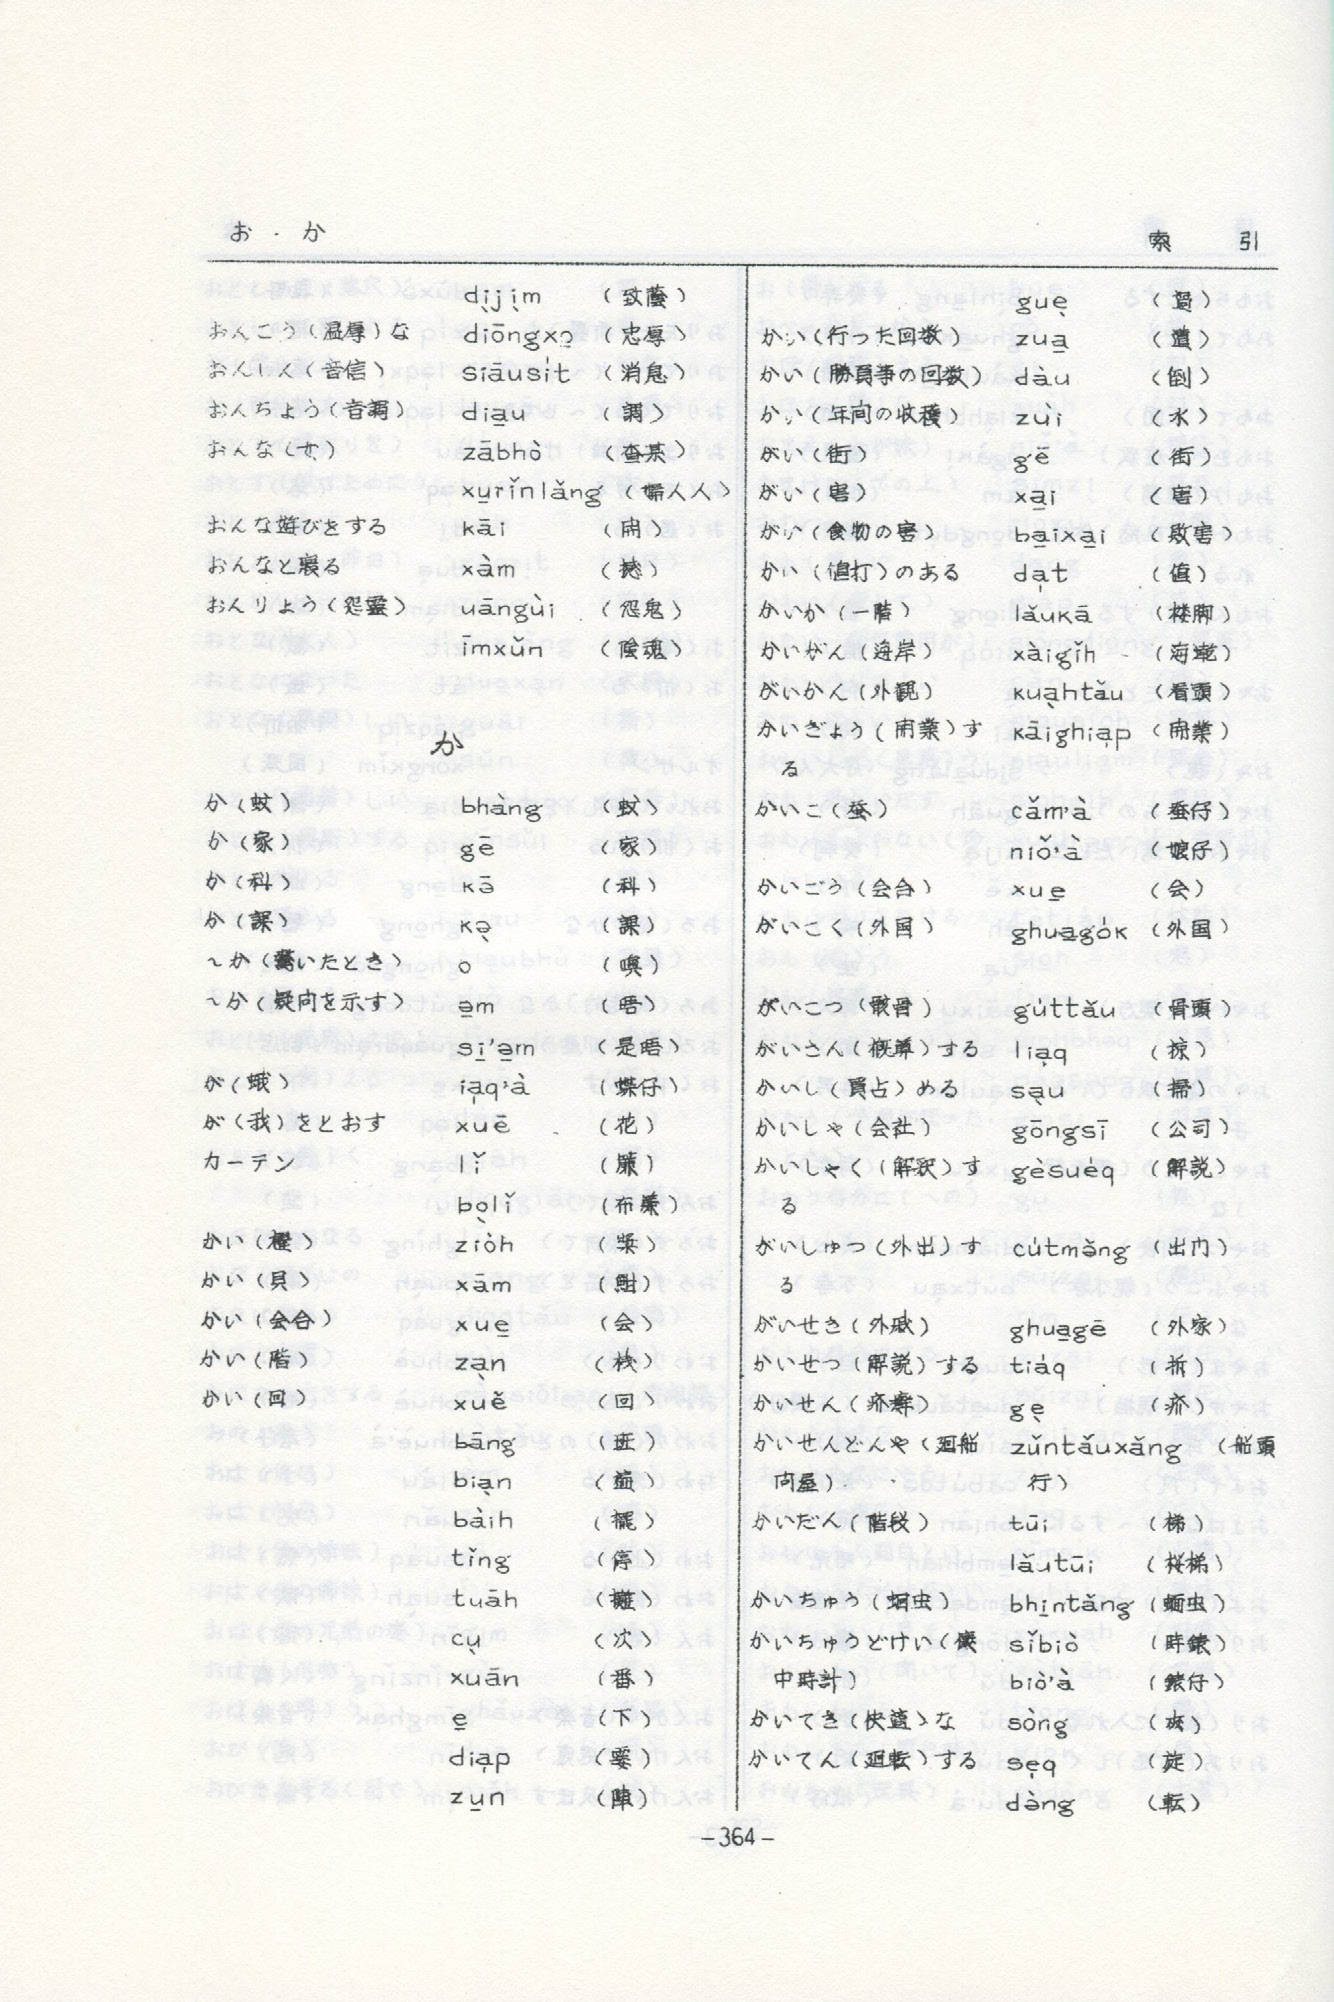 お・か
索引
dı̣jı̣m （致蔭）
おんこう（温厚）な diōngxo̱ （忠厚）
おんしん（音信） siāusı̍t （消息）
おんちょう（音調） dia̱u （調）
おんな（女） zābhò （查某）
xu̱rǐnlǎng （婦人人）
おんな遊びをする kāi （開）
おんなと寝る xàm （撼）
おんりょう（怨霊） uāngùi （怨鬼）
īmxǔn （陰魂）
か
か（蚊） bhàng （蚊）
か（家） gē （家）
か（科） kā （科）
か（課） kə̣ （課）
～か（驚いたとき） o （噢）
～か（疑問を示す） ə̱m （唔）
si̱'ə̱m （是唔）
が（蛾） iạq'à （蝶仔）
が（我）をとおす xuē （花）
カーテン lǐ （簾）
bọlǐ （布簾）
かい（櫂） ziòh （槳）
かい（貝） xām （蚶）
かい（会合） xue̱ （会）
かい（階） zạn （栈）
かい（回） xuě （回）
bāng （班）
biạn （遍）
bàih （擺）
tǐng （停）
tuāh （攤）
cụ （次）
xuān （番）
e̱ （下）
diạp （霎）
zu̱n （陣）
guẹ （過）
かい（行った回数） zua̱ （遭）
かい（勝負事の回数） dàu （倒）
かい（年間の收穫） zùi （水）
がい（街） gē （街）
がい（害） xa̱i （害）
がい（食物の害） ba̱ixa̱i （敗害）
かい（値打）のある dạt （值）
かいか（一階） lǎukā （楼脚）
かいがん（海岸） xàigǐh （海墘）
がいかん（外観） kuạhtǎu （看頭）
かいぎょう（開業）す kāighiạp （開業）
る
かいこ（蚕） cǎm'à （蚕仔）
niǒ'à （娘仔）
かいごう（会合） xue̱ （会）
がいこく（外国） ghua̱gȯk （外国）
がいこつ（骸骨） gu̍ttǎu （骨頭）
がいさん（概算）する liạq （掠）
かいし（買占）める sạu （掃）
かいしゃ（会社） gōngsī （公司）
かいしゃく（解釈）す gèsuèq （解説）
る
がいしゅつ（外出）す cútmǎng （出門）
る
がいせき（外戚） ghua̱gē （外家）
かいせつ（解説）する tiáq （拆）
かいせん（疥癬） gẹ （疥）
かいせんどんや（廻船 zǔntǎuxǎng （船頭
問屋） 行）
かいだん（階段） tūi （梯）
lǎutūi （楼梯）
かいちゅう（蛔虫） bhi̱ntǎng （蛔虫）
かいちゅうどけい（懐 sǐbiò （時錶）
中時計） biò'à （錶仔）
かいてき（快適）な sòng （爽）
かいてん（廻転）する sẹq （旋）
də̀ng （転）
-364-